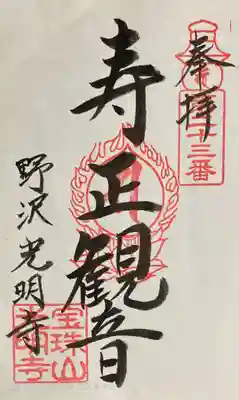 奉拝
十三番
寿正観音
野沢光明寺
宝珠山
光明寺